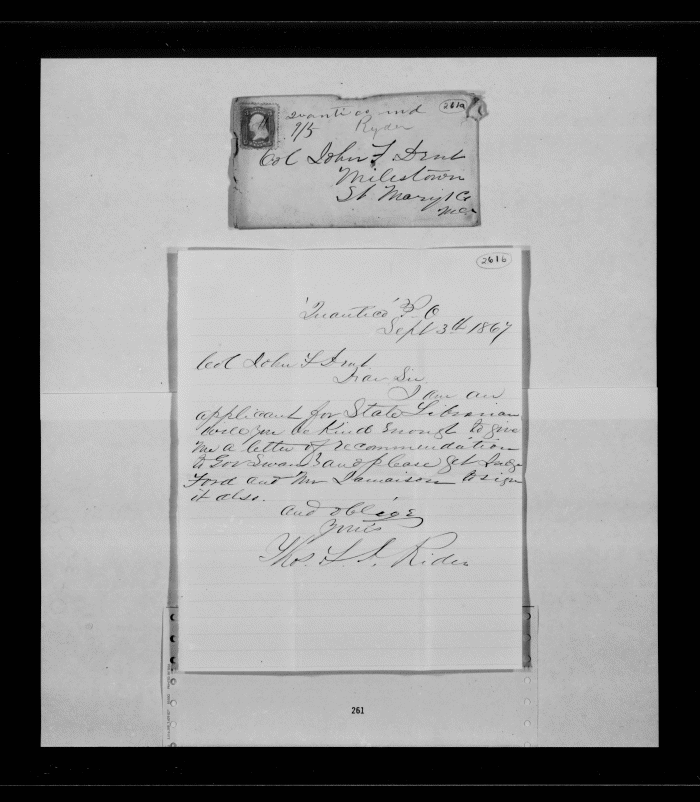 261a
Quantico md
9/5 Ryder
Col John F Dent
Milestown
St Mary's Co
Md
261b
"Quantico" P. O
Sept 3th 1867
Col John F Dent.
Dear Sir.
I am an
applicant for State Librarian
will you be kind enough to give
me a letter of recommendation
to Gov Swan & and please get Judge
Ford and Mr Jamaison to sign
it also.
and oblige
Yours
Thos. F. J. Rider
261